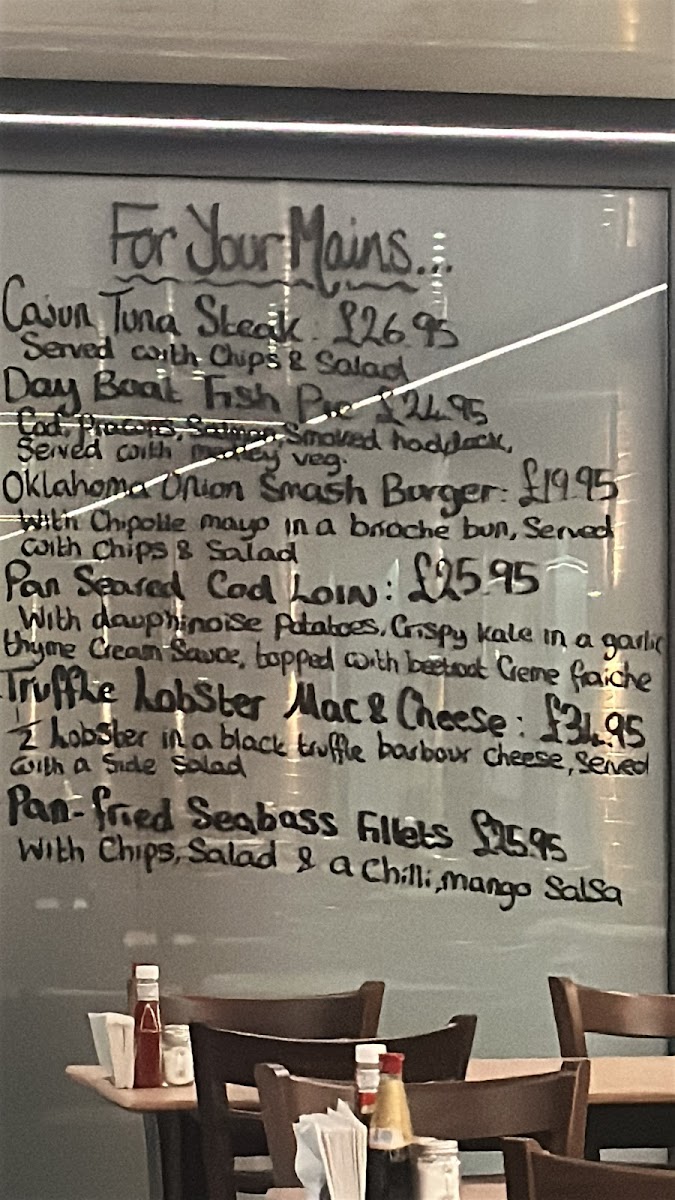 For Your Mains...
Cajun Tuna Steak: £26.95
Served with Chips & Salad
Day Boat Fish Pie £24.95
Cod, Prawns, Salmon, Smoked haddock,
Served with medley veg.
Oklahoma Onion Smash Burger: £19.95
With Chipotle mayo in a brioche bun, Served
with Chips & Salad
Pan Seared Cod Loin: £25.95
With dauphinoise Potatoes, Crispy kale in a garlic
thyme Cream Sauce, topped with beetroot Creme fraiche
Truffle Lobster Mac & Cheese: £34.95
1/2 Lobster in a black truffle barbour cheese, Served
with a Side Salad
Pan-fried Seabass Fillets £25.95
With Chips, Salad & a Chilli, mango Salsa